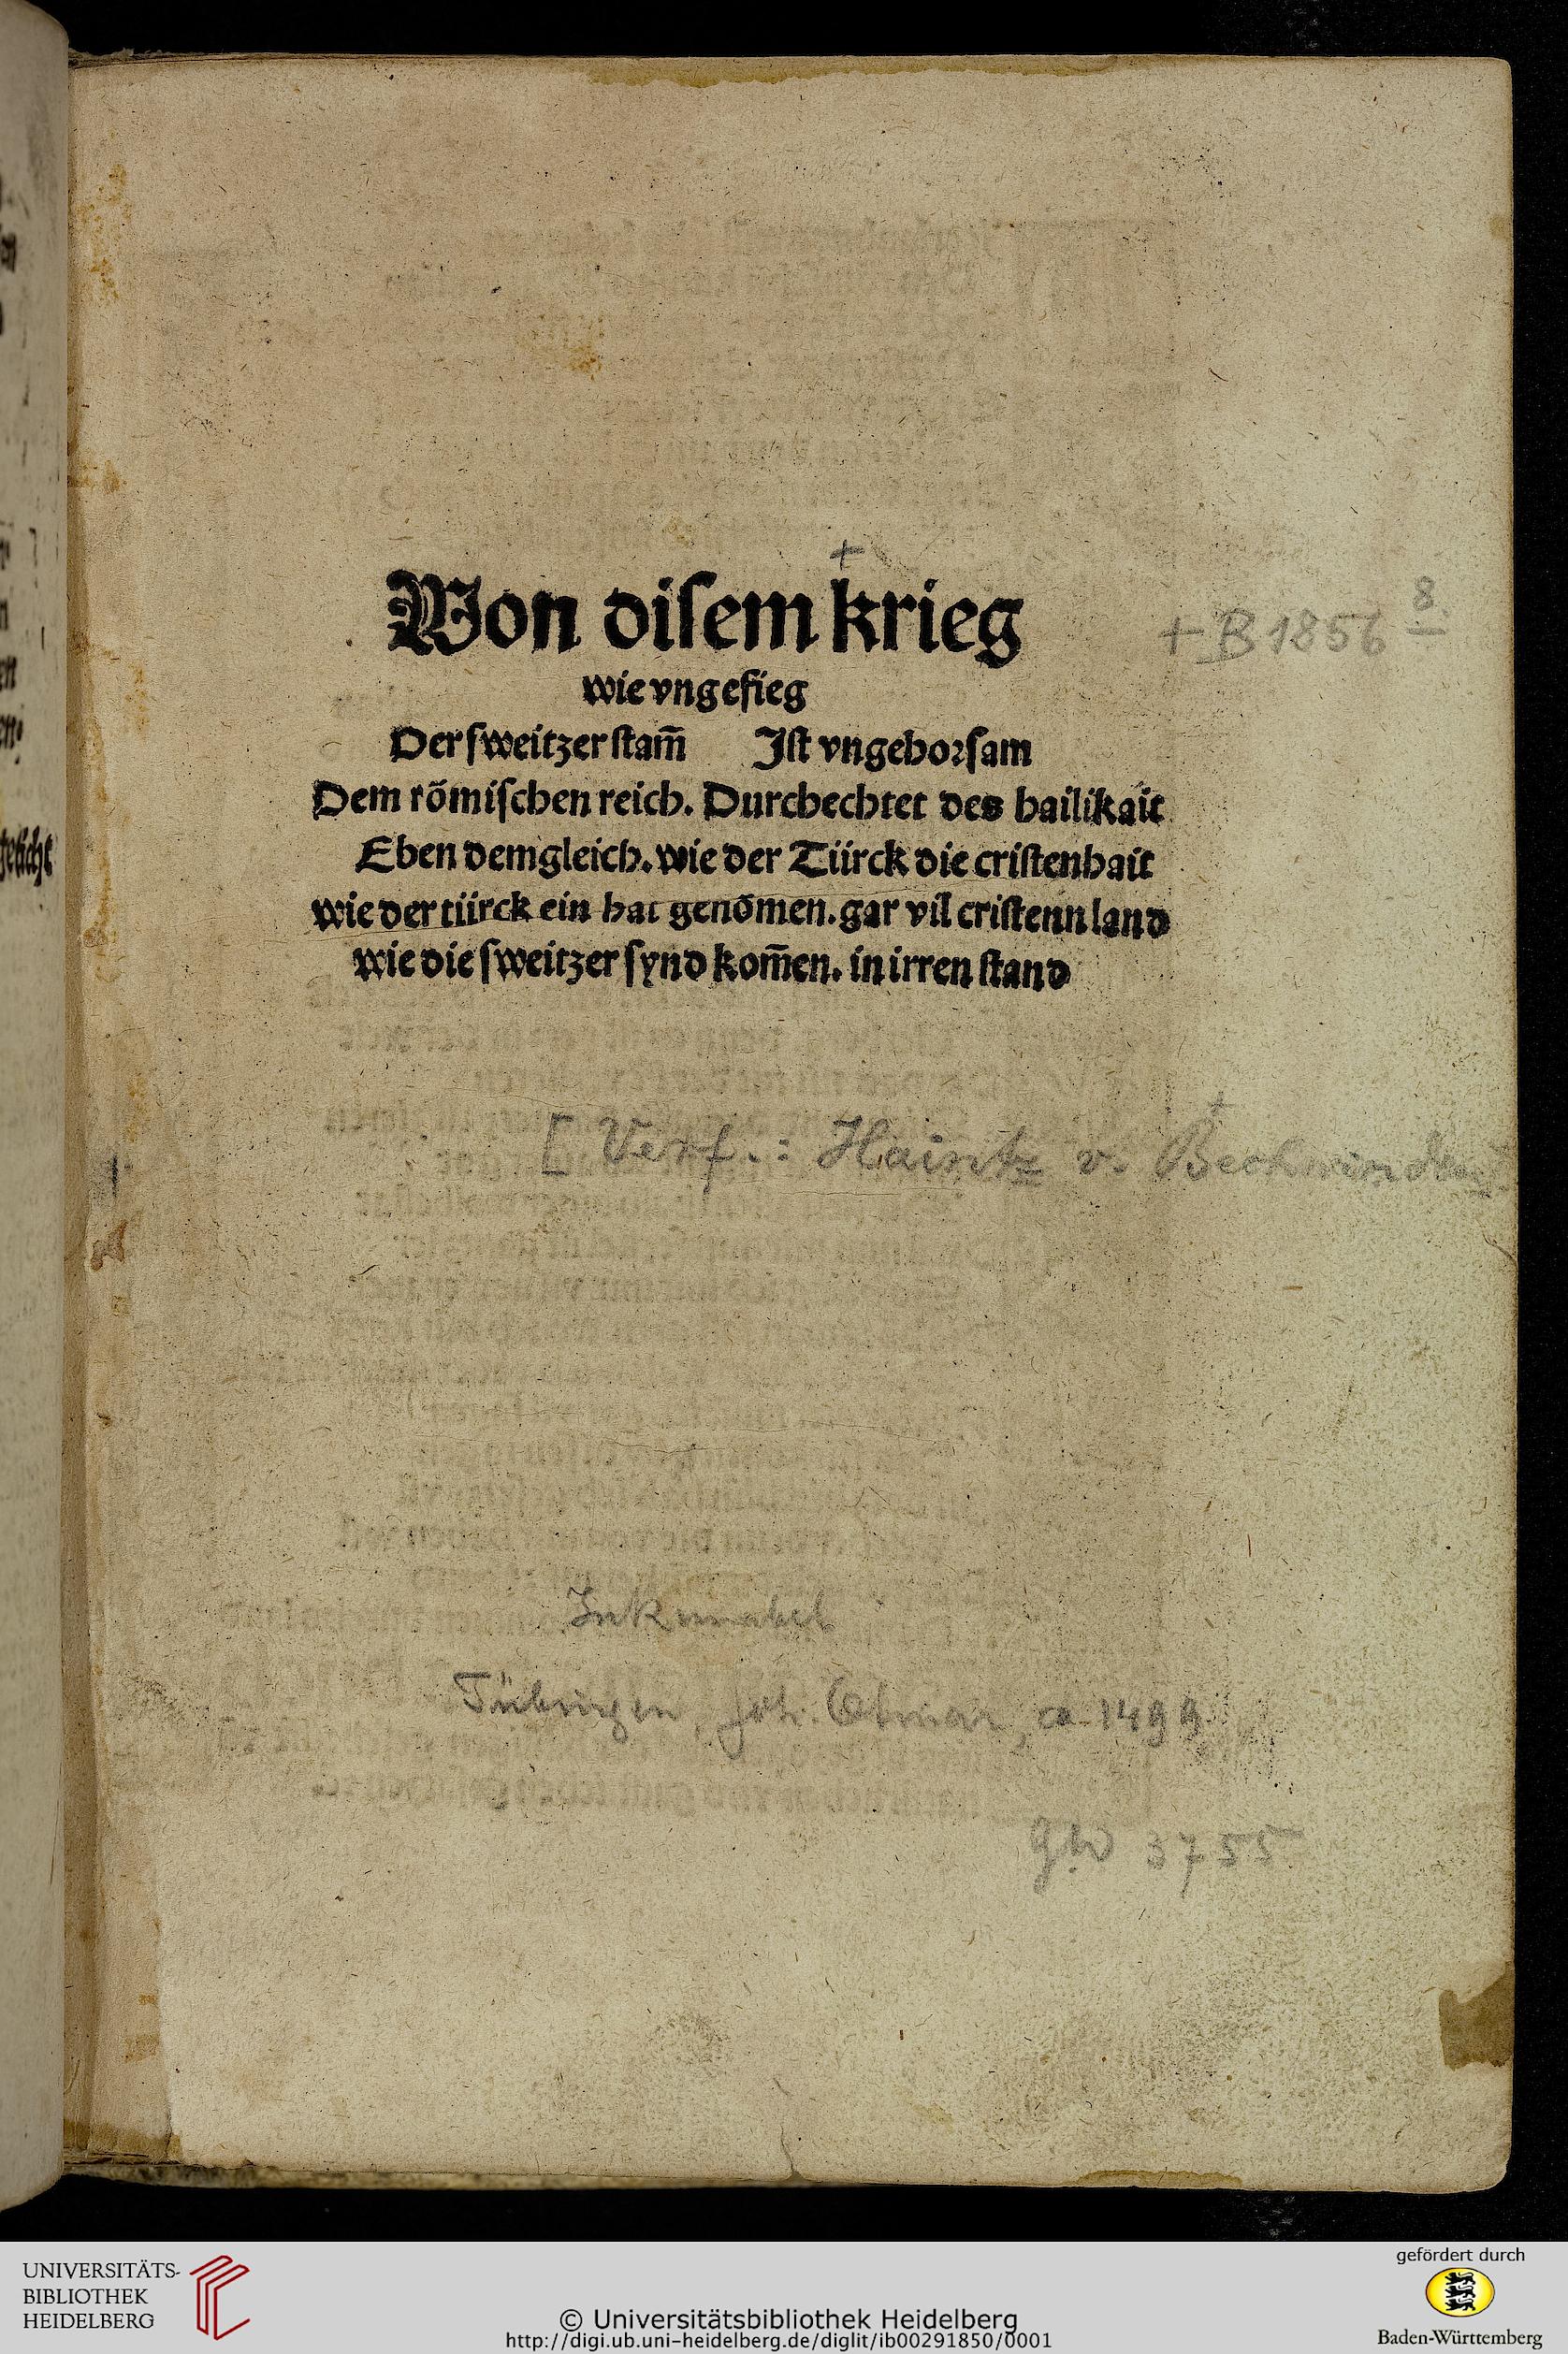 Von disem krieg
+ B 1856 8
wie vngefieg
Der sweitzer stam̄ Ist vngehorsam
Dem römischen reich. Durchechtet des hailikait
Eben demgleich. wie der Türck die cristenhait
wie der türck ein hat genōmen. gar vil cristenn land
wie die sweitzer synd kom̄en. in irren stand
[ Verf.: Haintz v. Bechwinden
Inkunabel
Tübingen, Joh. Otmar, ca 1499
GW 3755
UNIVERSITÄTS-
BIBLIOTHEK
HEIDELBERG
© Universitätsbibliothek Heidelberg
http://digi.ub.uni-heidelberg.de/diglit/ib00291850/0001
gefördert durch
Baden-Württemberg